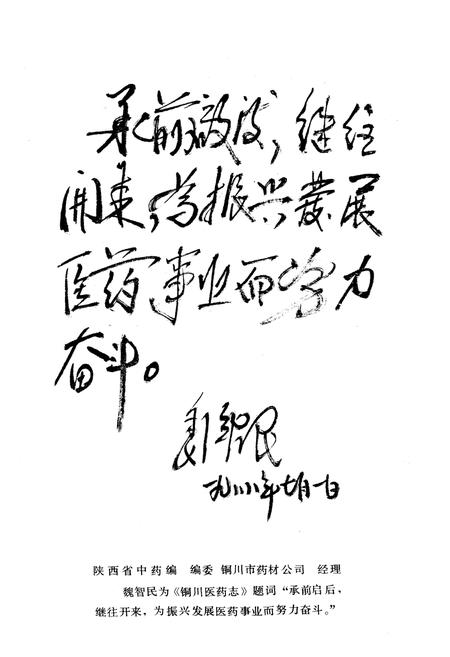 承前啟後，继往
開来，为振兴發展
医药事业而努力
奋斗。
魏智民
一九八八年七月一日
陕西省中药编　编委　铜川市药材公司　经理
魏智民为《铜川医药志》题词“承前启后，
继往开来，为振兴发展医药事业而努力奋斗。”